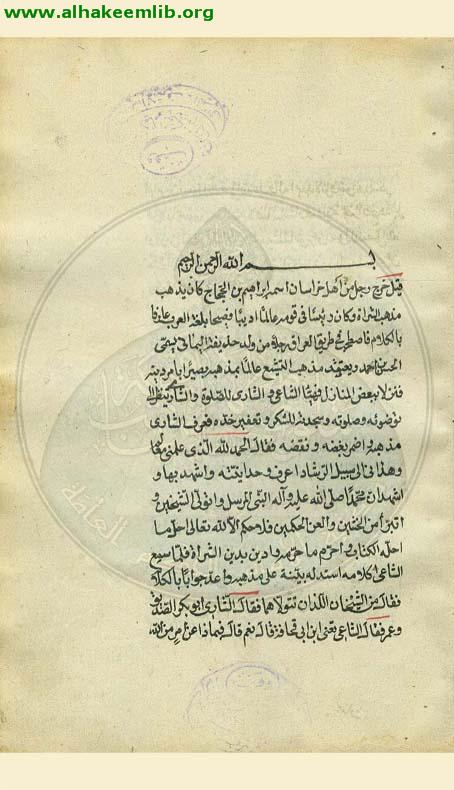 www.alhakeemlib.org
بسم الله الرحمن الرحيم
قيل خرج رجل من أهل خراسان اسمه ابراهيم بن الحجاج كان يذهب
مذهب الشراة وكان رئيسًا في قومه عالمًا اديبًا فصيحا بلغة العرب عارفا
بالكلام فاصطحب في طريق العراق رجلا من ولد حذيفة اليماني يسمى
الحسن بن احمد ويعتقد مذهب التشيع عالمًا بمذهبه بصيرًا بأمر دينه
فنزلا بعض المنازل فهيئا الشاعي والشاري للصلوة والشاري ينظر الى
توضوئه وصلوته وسجدته للشكر وتعفير خده فعرف الشاري
مذهبه واضمر بغضه ونقضه فقال الحمد لله الذي علمني
وهداني الى سبيل الرشاد اعرف وحدانيته واشهد بها و
اشهد ان محمدًا صلى الله عليه وآله النبي المرسل واتولى الشيخين و
اتبرأ من الختنين والعن الحكمين فلا حكم الا لله تعالى احل ما
احله الكتاب واحرم ما حرمه وادين بدين الشراة فلما سمع
الشاعي كلامه استدل به على مذهبه واعد جوابا بالكلام
فقال من الشيخان اللذان تتولاهما فقال الشاري ابو بكر
وعمر فقال الشاعي تعني ابن ابي قحافة قال نعم قال فبماذا من الله